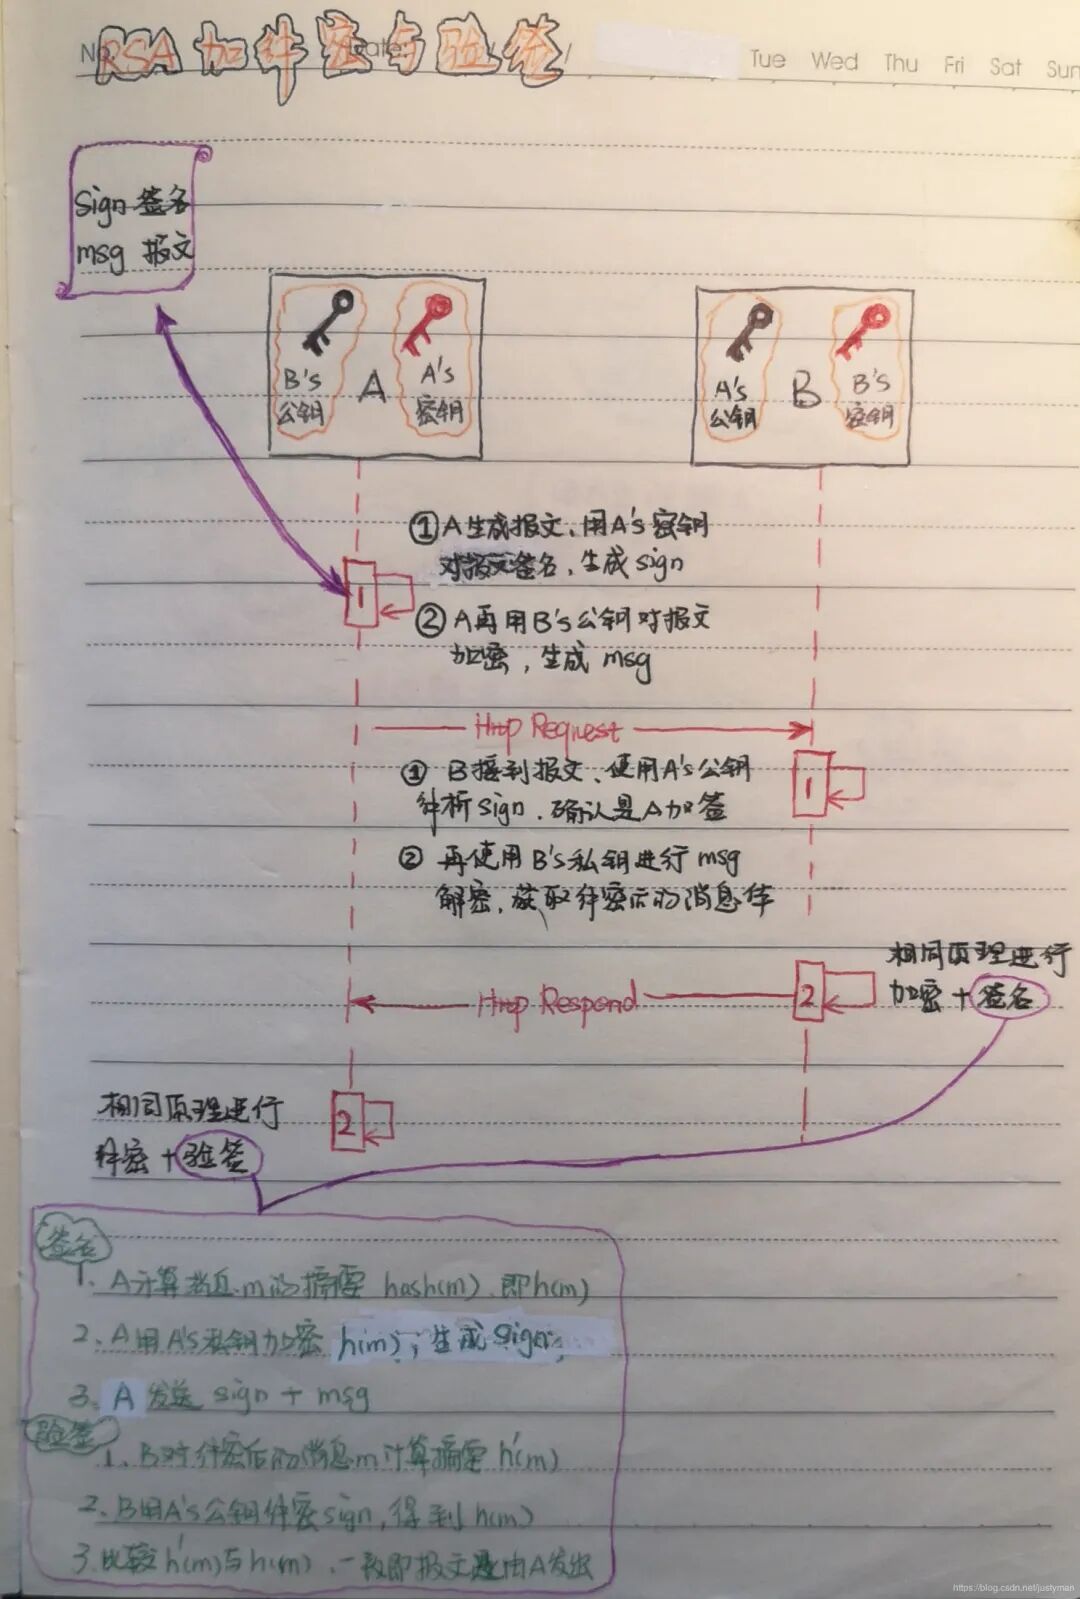 No
Date:
RSA 加解密与验签
Tue Wed Thu Fri Sat Sun
Sign 签名
msg 报文
B's
公钥
A
A's
密钥
A's
公钥
B
B's
密钥
①A生成报文、用A's密钥
对报文签名，生成sign
1
②A再用B's公钥对报文
加密，生成 msg
Http Request
① B接到报文、使用A's公钥
解析sign、确认是A加签
1
② 再使用B's私钥进行 msg
解密，获取解密后的消息体
相同原理进行
加密+签名
2
Http Respond
相同原理进行
解密+验签
2
签名
1、A计算消息m的摘要 hash(m)、即h(m)
2、A用A's私钥加密 h(m)；生成Sign；
3、A 发送 sign + msg
验签
1、B对解密后的消息m计算摘要 h'(m)
2、B用A's公钥解密sign，得到h(m)
3、比较h'(m)与h(m)、一致即报文是由A发出
https://blog.csdn.net/justyman